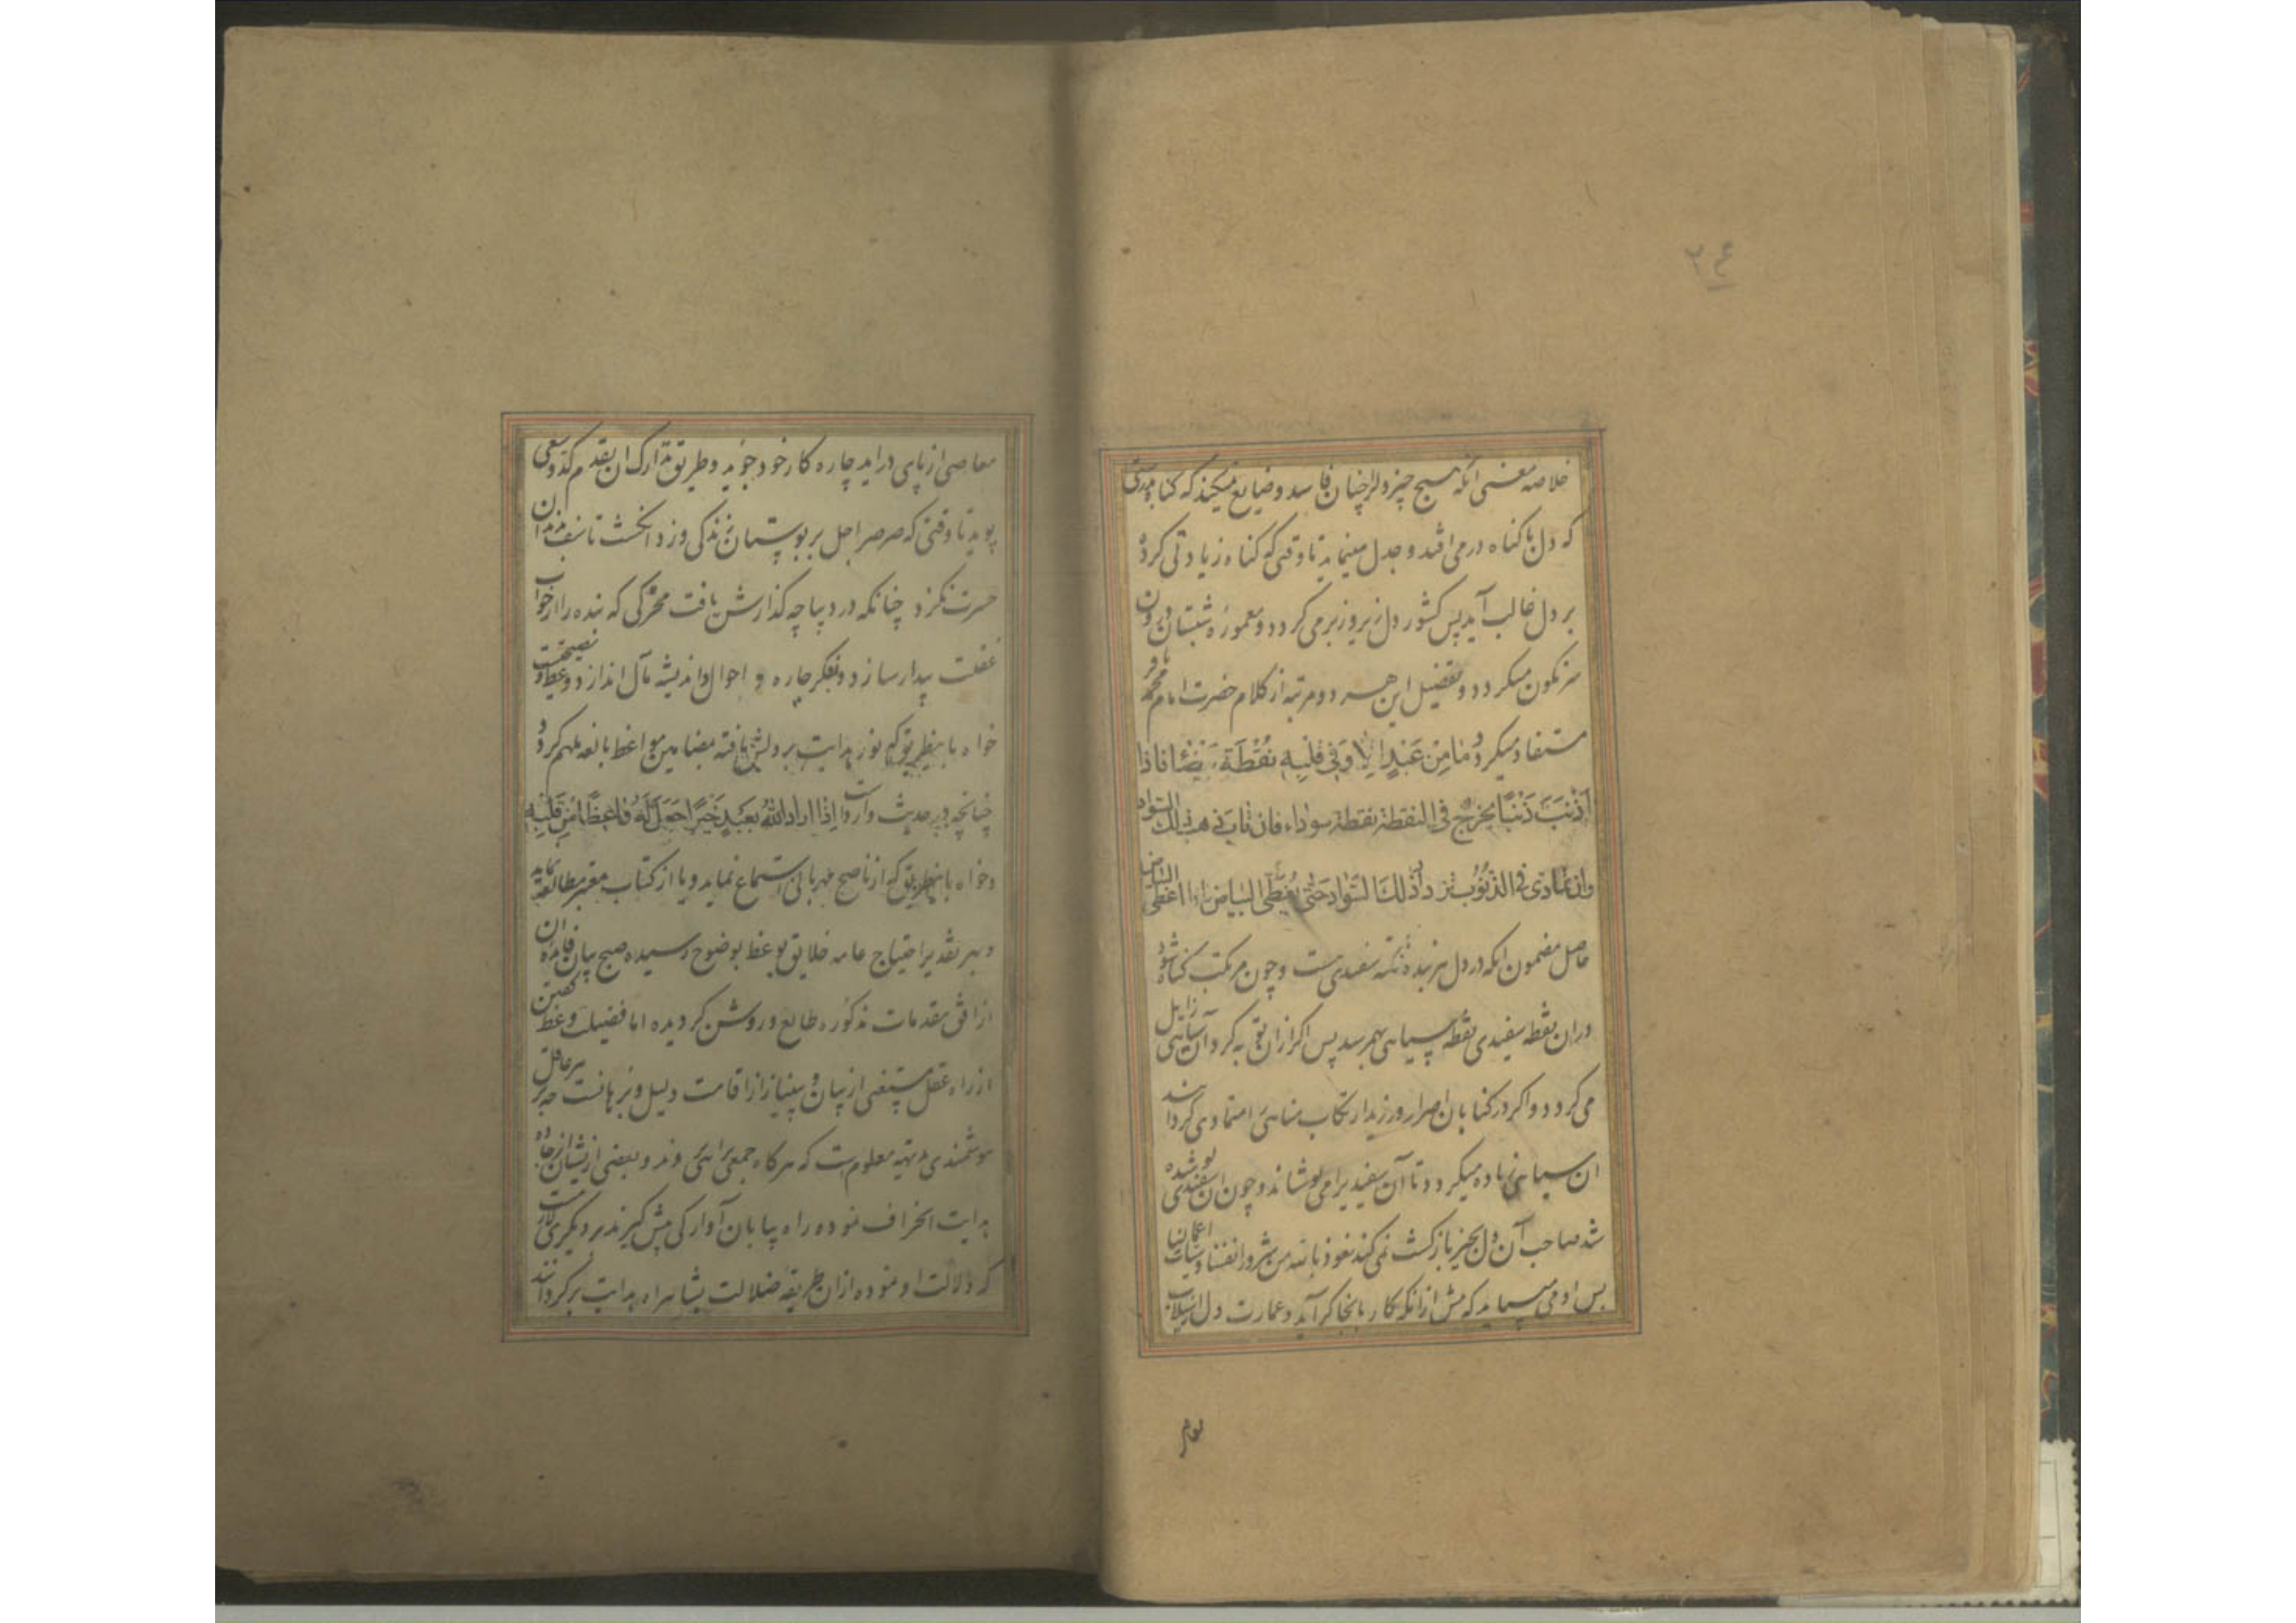 ۲۴
خلاصه معنی آنکه هیچ چیز دلرا چنان فاسد و ضایع نمیکند که گناه بدرستی
که دل با گناه در می افتد و جدل مینماید تا وقتی که گناه زیادتی کرده
بر دل غالب آید پس کشور دل زیر و زبر می گردد و معموره شبستان درون
سرنگون میگردد و تفضیل این هر دو مرتبه از کلام حضرت امام محمد باقر
مستفاد میگردد مَا مِنْ عَبْدٍ اِلّا وَفِی قَلْبِهِ نُقْطَة بَیْضَاء فاذا
اَذْنَبَ ذَنْبًا یخرج فی النقطة نقطة سوداء فان تاب ذهب ذلک السواد
وان تمادی فی الذنوب زاد ذلک السواد حتی یُغطّی البیاض اذا غطی البیاض
حاصل مضمون آنکه در دل هر بنده نکته سفیدی هست و چون مرتکب گناه شود
در ان نقطه سفیدی نقطه سیاهی بهم رسد پس اگر از ان توبه کرد آن سیاهی زایل
می گردد و اگر در گناهان اصرار ورزید ارتکاب مناهی را متمادی گرداند
ان سیاهی زیاده میگردد تا آن سفیدیرا می پوشاند و چون ان سفیدی پوشیده
شد صاحب آن دل بخیر بازگشت نمی کند نعوذ بالله من شرور انفسنا و سیئات اعمالنا
پس او می باید که پیش از آنکه کار بانجا گراید و عمارت دل از سیلاب
معاصی از پای در اید چاره کار خود جوید و طریق تدارک ان بقدم کد و سعی
پوید تا وقتی که صرصر اجل بر بوستان زندگی وزد انگشت تاسف بدندان
حسرت نگزد چنانکه در دیباچه گذارش یافت محرکی که بنده را از خواب
غفلت بیدار سازد و بفکر چاره و احوال و اندیشه مآل اندازد وعظ و نصیحت
خواه باینطریق که نور هدایت بر دلش تافته بمضامین مواعظ بالغه ملهم گردد
چنانچه در حدیث وارد است اِذا اراد اللّٰهُ بعَبْدٍ خَیْرًا جَعَلَ لَهُ وَاعِظًا مِنْ قَلْبِهِ
و خواه باینطریق که از ناصح مهربانی استماع نماید و یا از کتاب معتبر مطالعه نماید
و بهر تقدیر احتیاج عامه خلایق بوعظ بوضوح رسیده صبح بیان فایده ان
از افق مقدمات مذکوره طالع و روشن گردیده اما فضیلت وعظ گفتن
از راه عقل مستغنی از بیان و بینیاز از اقامت دلیل و برهانست چه بر هر عاقل
هوشمندی بدیهه معلوم است که هر گاه جمعی براهی روند و بعضی از یشان از جاده
هدایت انحراف نموده راه بیابان آوارگی پیش گیرند بر دیگری لازمست
که دلالت او نموده از ان طریقه ضلالت بشاهراه هدایت برگرداند
معاصی